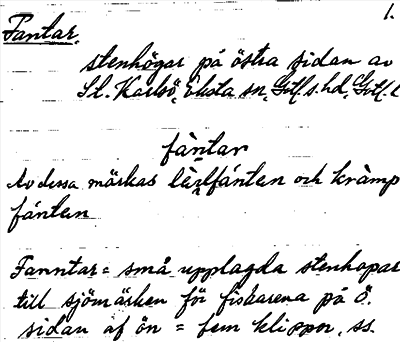 1.
Fantar.
stenhögar på östra sidan av
St. Karlsö, Eksta sn, Gotl. s. hd, Gotl. l
fàntar
Av dessa märkas lèzlfánten och kràmp
fánten
Fanntar = små upplagda stenhapar
till sjömärken för fiskarena på ö.
sidan af ön = fem klippor, ss.